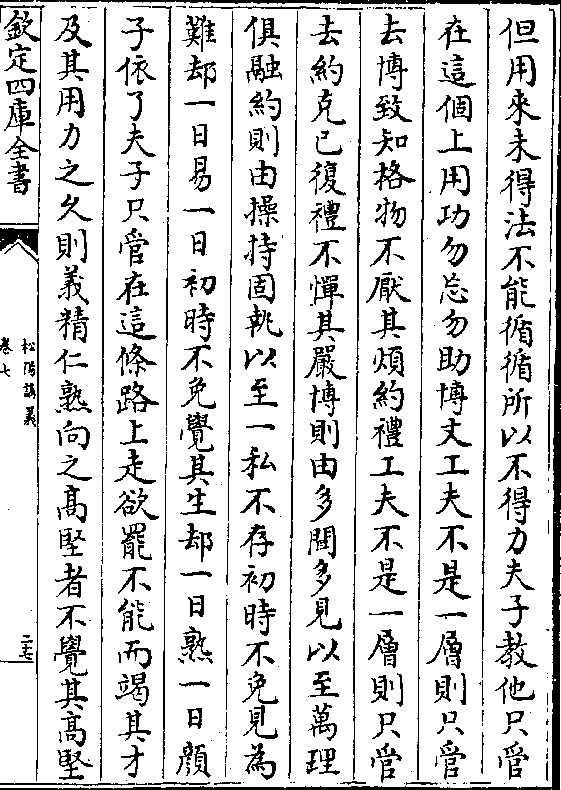 但用來未得法不能循循所以不得力夫子教他只管
在這個上用功勿忘勿助博文工夫不是一層則只管
去博致知格物不厭其煩約禮工夫不是一層則只管
去約克已復禮不憚其嚴博則由多聞多見以至萬理
俱融約則由操持固執以至一私不存初時不免見為
難却一日易一日初時不免覺其生却一日熟一日顔
子依了夫子只管在這條路上走欲罷不能而竭其才
及其用力之久則義精仁熟向之髙堅者不覺其髙堅
欽定四庫全書
松陽講義
卷七
二七